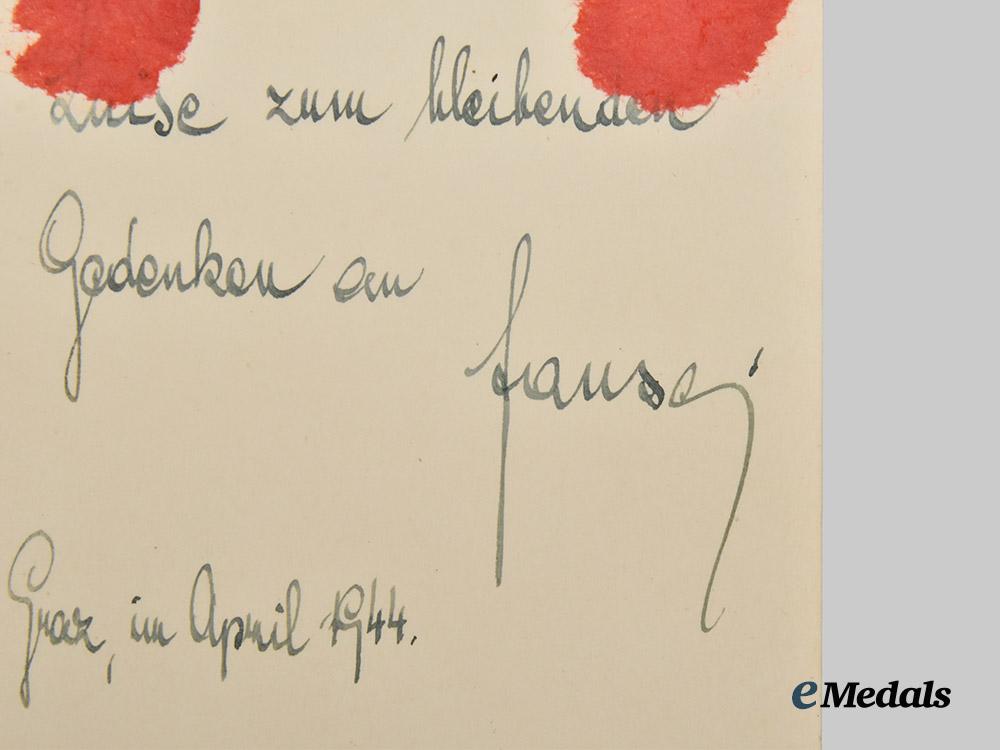 Luise zum bleibenden
Gedenken an
Graz, im April 1944.
eMedals